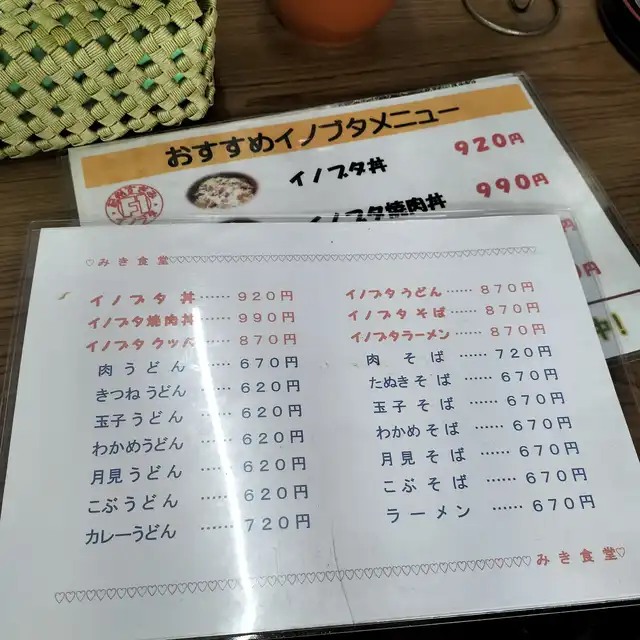 おすすめイノブタメニュー
イノブタ丼 920円
イノブタ焼肉丼 990円
♡みき食堂♡♡♡♡♡♡♡♡♡♡♡♡♡♡♡♡♡♡♡♡♡♡♡♡♡♡♡♡♡♡♡♡♡♡♡♡
イノブタ 丼……920円
イノブタ焼肉丼……990円
イノブタ クッパ……870円
肉うどん……670円
きつねうどん……620円
玉子うどん……620円
わかめうどん……620円
月見うどん……620円
こぶうどん……620円
カレーうどん……720円
イノブタうどん……870円
イノブタ そば……870円
イノブタラーメン……870円
肉 そば……720円
たぬきそば……670円
玉子 そば……670円
わかめそば……670円
月見 そば……670円
こぶ そば……670円
ラーメン……670円
♡♡♡♡♡♡♡♡♡♡♡♡♡♡♡♡♡♡♡♡♡♡♡♡♡♡♡♡♡♡♡♡♡♡♡♡みき食堂♡